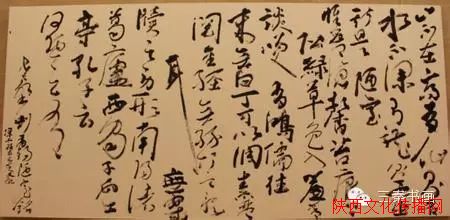 山不在高有仙则名
水不深有龙则灵
斯是陋室
惟吾德馨苔痕
阶绿草色入簾
谈笑有鸿儒往
来无白丁可以调素琴
阅金经无丝竹之乱
耳無案
牍之劳形南阳诸
葛廬西蜀子云
亭孔子云
何陋之有
刘禹锡陋室铭
三秦书画
陕西文化传播网